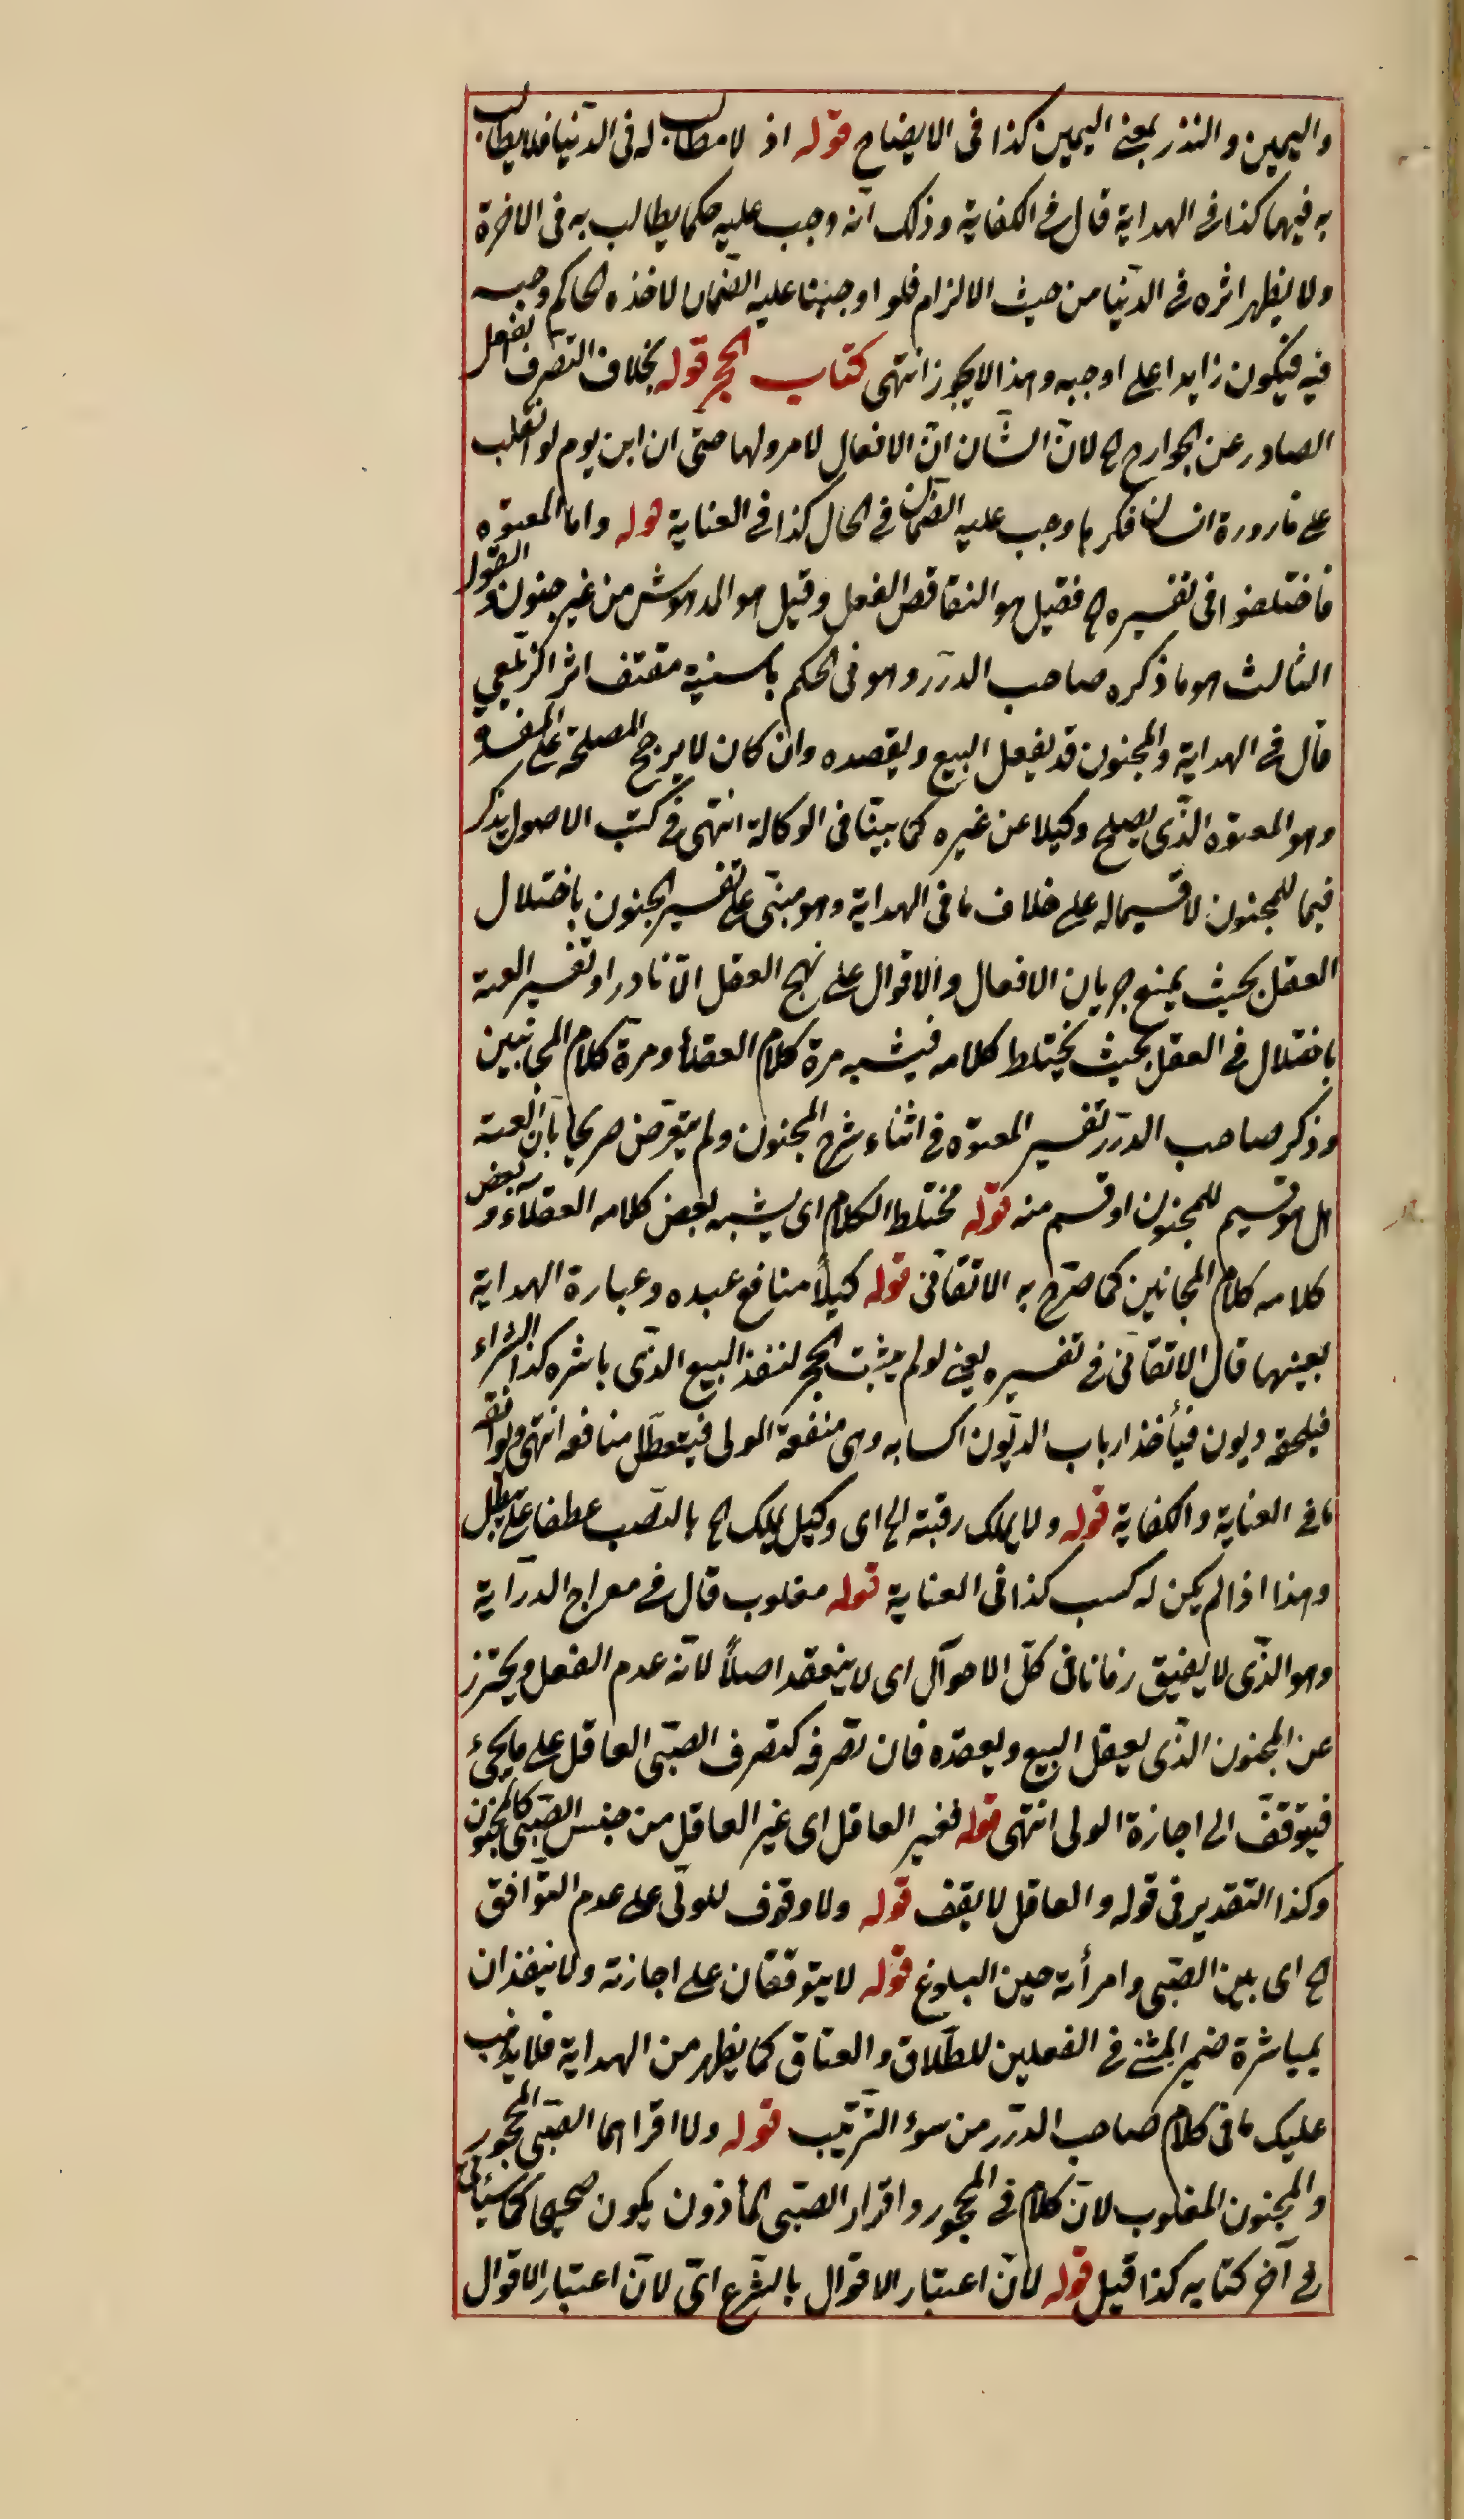 واليمين والنذر بمعنى اليمين كذا فى الايضاح قوله اذ لا مطالب له فى الدنيا فلا يطالب
به فيهما كذا فى الهداية قال فى الكفاية وذلك انه وجب عليه حكما يطالب به فى الاخرة
ولا يظهر اثره فى الدنيا من حيث الالزام فلو اوجبنا عليه الضمان لاخذه الحاكم وحبسه
فيه فيكون زايدا على اوجبه وهذا لا يجوز انتهى كتاب الحجر قوله بخلاف التصرف الفعل
الصادر عن الجوارح الخ لان الشان ان الافعال لا مرد لها حتى ان ابن يوم لو انقلب
على قارورة انسان فكسرها وجب عليه الضمان فى الحال كذا فى العناية قوله واما المعتوه
فاختلفوا فى تفسيره الخ فقيل هو الناقص العقل وقيل هو المدهوش من غير جنون والقول
الثالث هو ما ذكره صاحب الدرر وهو فى الحكم مقتف اثر الزيلعى
قال فى الهداية والمجنون قد يفعل البيع ويقصده وان كان لا يرجح المصلحة على المفسدة
وهو المعتوه الذى يصلح وكيلا عن غيره كما بينا فى الوكالة انتهى فى كتب الاصول يذكر
قيما للمجنون لا قسيما له على خلاف ما فى الهداية وهو مبنى على تفسير الجنون باختلال
العقل بحيث يمنع جريان الافعال والاقوال على نهج العقل الا نادرا وتفسير العته
باختلال فى العقل بحيث يختلط كلامه فيشبه مرة كلام العقلاء ومرة كلام المجانين
وذكر صاحب الدرر تفسير المعتوه فى اثناء شرح المجنون ولم يتعرض صريحا بان العته
هل هو قسيم للمجنون او قسم منه قوله مختلط الكلام اى يشبه بعض كلامه العقلاء وبعض
كلامه كلام المجانين كما صرح به الاتقانى قوله كيلا منافع عبده وعبارة الهداية
بعينها قال الاتقانى فى تفسيره يعنى لو لم يثبت الحجر لنفذ البيع الذى باشره كذا الشراء
فيلحقه ديون فيأخذ ارباب الديون اكسابه وهى منفعة المولى فيتعطل منافعه انتهى
ما فى العناية والكفاية قوله ولا يملك رقبته الخ اى وكيلا يملك الخ بالنصب عطفا على يبطل
وهذا اذا لم يكن له كسب كذا فى العناية قوله مغلوب قال فى معراج الدراية
وهو الذى لا يفيق زمانا فى كل الاحوال اى لا ينعقد اصلا لانه عدم العقل ويحترز
عن المجنون الذى يعقل البيع ويقصده فان تصرفه كتصرف الصبى العاقل على ما يجئ
فيتوقف الى اجازة الولى انتهى قوله فغير العاقل اى غير العاقل من جنس الصبى كالمجنون
وكذا التقدير فى قوله والعاقل لا يقف قوله ولا وقوف للولى على عدم التوافق
الخ اى بين الصبى وامرأته حين البلوغ قوله لا يتوقفان على اجازته ولا ينفذان
بمباشرة ضمير المثنى فى الفعلين للطلاق والعتاق كما يظهر من الهداية فلا يذهب
عليك ما فى كلام صاحب الدرر من سوء الترتيب قوله ولا اقرارهما الصبى المحجور
والمجنون المغلوب لان كلام فى المحجور واقرار الصبى المأذون يكون صحيحا كما سيأتى
فى آخر كتابه كذا قيل قوله لان اعتبار الاقوال بالشرع اى لان اعتبار الاقوال